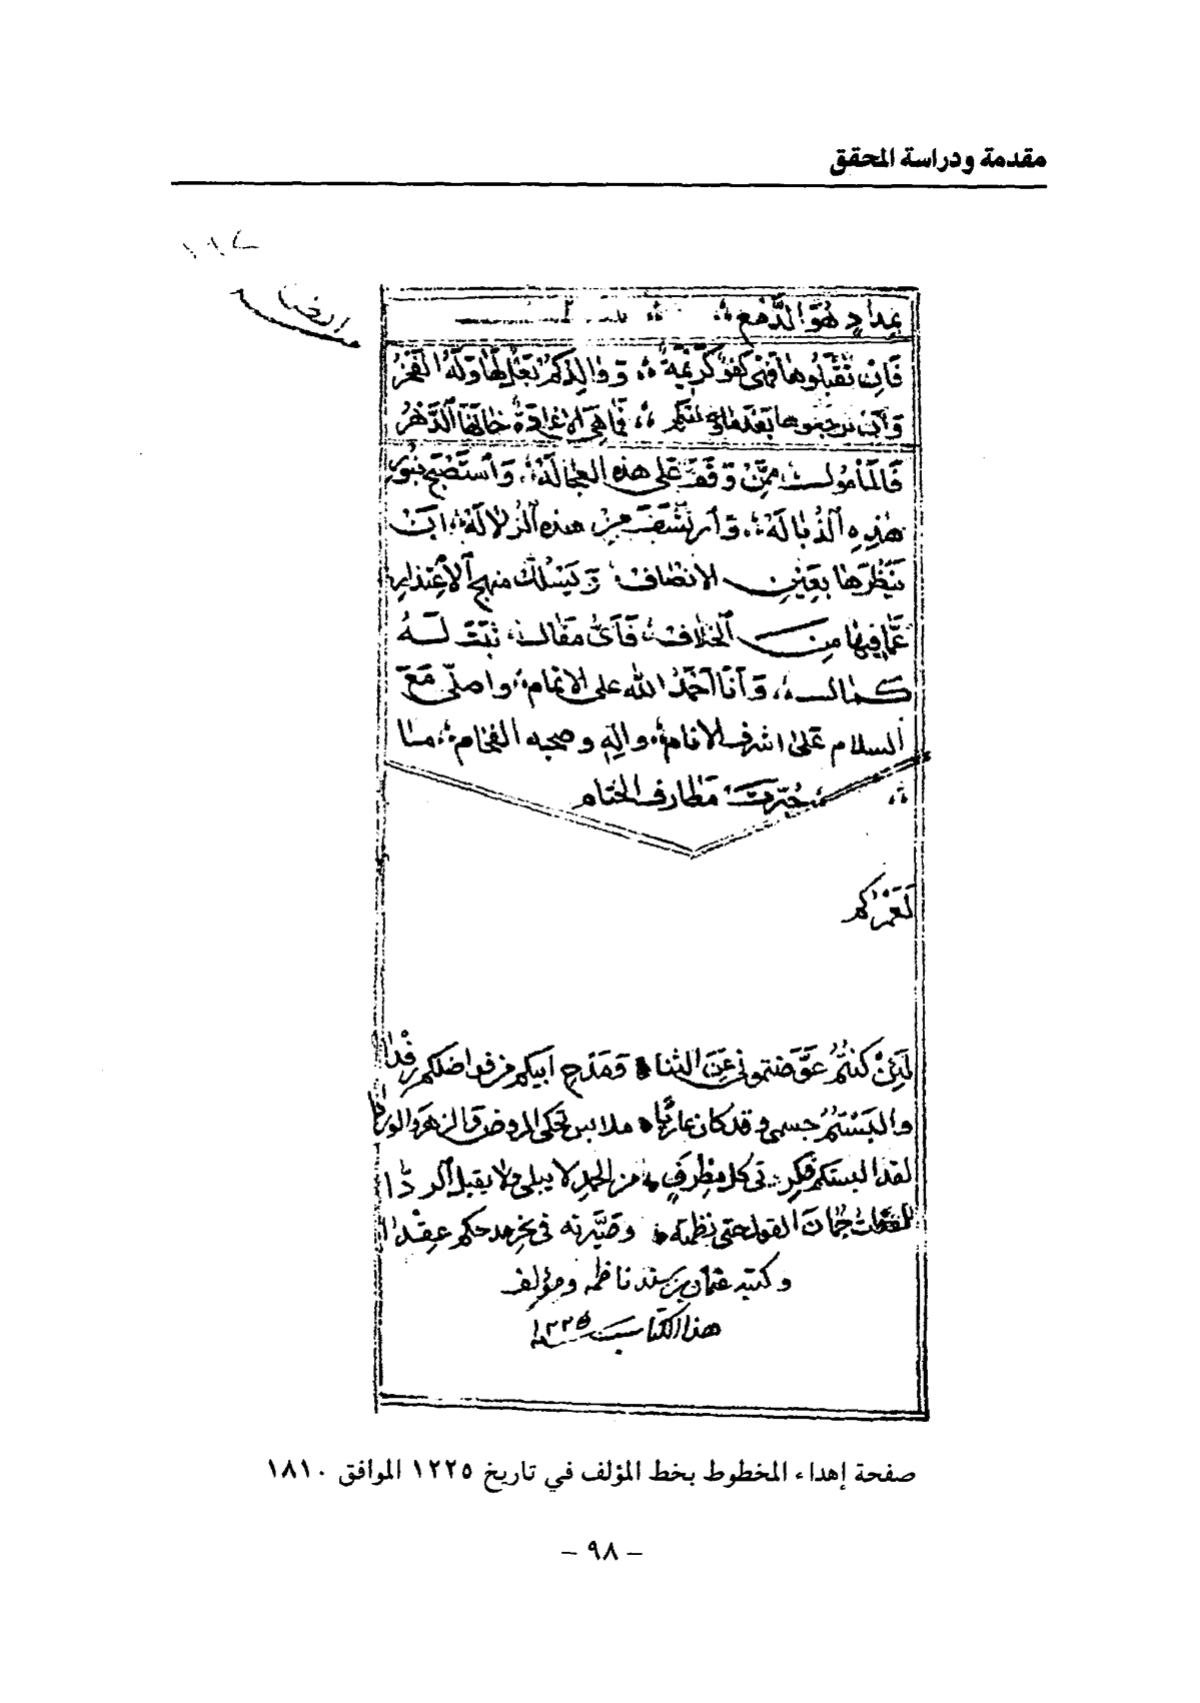 مقدمة ودراسة المحقق
بمداد هو الدمع
فَإن تقبلوها فهي كفؤ كريمة ووالدكم بعل لها وله الفخر
وان ترجعوها بعد فما هي الا غادة خانها الدهر
فالمأمول ممن وقف على هذه العجالة، واستصبح بنور
هذه الذبالة، وارتشف من هذه الزلالة، ان
ينظرها بعين الانصاف، ويسلك منهج الاعتذار
عما فيها من الخلاف، فأي مقال، ثبت له
كمال، وأنا احمد الله على الاتمام، واصلي مع
السلام على اشرف الانام، واله وصحبه الفخام، ما
حبرت مطارف الختام
لعمركم
لئن كنتم عوضتموني عن الثنا ومدح ابيكم من فواضلكم رفدا
والبستم جسمي وقد كان عاريا ملابس تحكي الروض والزهر والوردا
لقد البستكم فكرتي كل مطرف من الحمد لا يبلى ولا يقبل الردا
جمان القول حتى نظمته وصيرته في نحر مدحكم عقدا
وكتبه عثمان بن سند ناظمه ومؤلف
هذا الكتاب سنة ١٢٢٥
صفحة إهداء المخطوط بخط المؤلف في تاريخ ١٢٢٥ الموافق ١٨١٠
– ٩٨ –